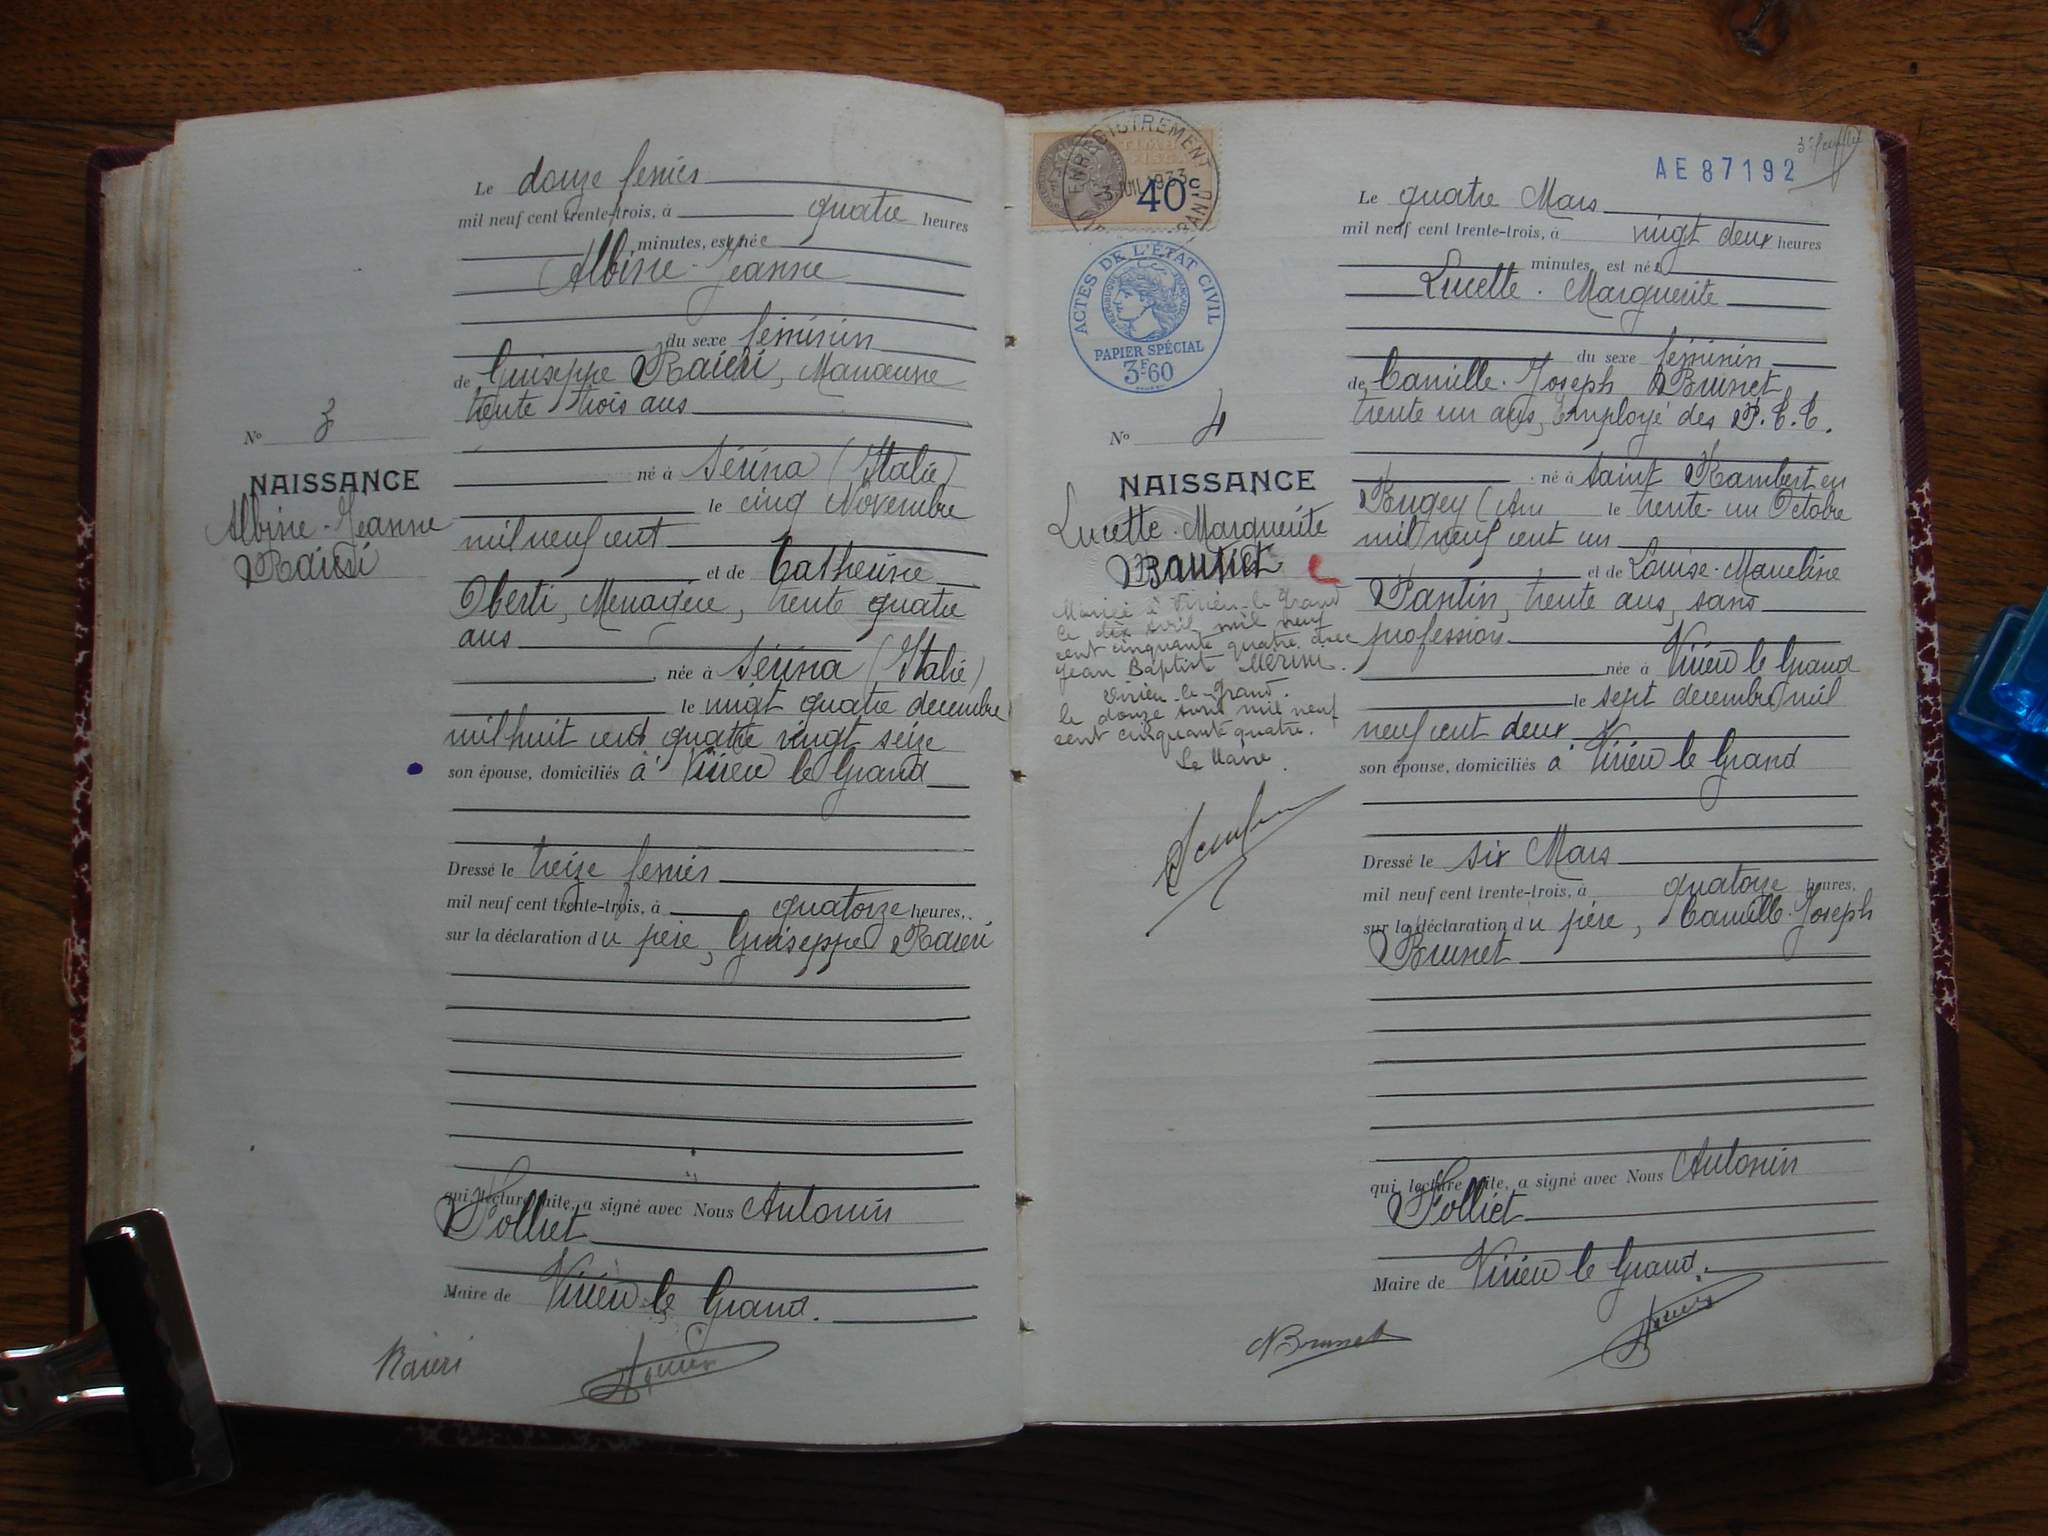 Le douze février
mil neuf cent trente-trois, à quatre heures
minutes, est née
Albine-Jeanne
du sexe féminin
de Guiseppe Raieri, Manœuvre
trente trois ans
né à Sérina (Italie)
le cinq Novembre
mil neuf cent
et de Catherine
Oberti, Ménagère, trente quatre
ans
née à Sérina (Italie)
le vingt quatre décembre
mil huit cent quatre vingt seize
son épouse, domiciliés à Virieu le Grand
Dressé le treize février
mil neuf cent trente-trois, à quatorze heures,
sur la déclaration du père, Guiseppe Raieri
qui, lecture faite, a signé avec Nous Antonin
Polliet
Maire de Virieu le Grand.
Raieri
N° 3
NAISSANCE
Albine-Jeanne
Raieri
ENREGISTREMENT
1933
40c
ACTES DE L'ÉTAT CIVIL
RÉPUBLIQUE FRANÇAISE
PAPIER SPÉCIAL
3F60
AE 87192
N° 4
NAISSANCE
Lucette-Marguerite
Brunet
Mariée à Virieu-le-Grand
le dix avril mil neuf
cent cinquante quatre avec
Jean Baptiste
Virieu-le-Grand.
le douze avril mil neuf
cent cinquante quatre.
Le Maire
Le quatre Mars
mil neuf cent trente-trois, à vingt deux heures
minutes, est née
Lucette-Marguerite
du sexe féminin
de Camille-Joseph Brunet
trente un ans, Employé des P.T.T.
né à Saint Rambert en
Bugey (Ain le trente-un Octobre
mil neuf cent un
et de Louise-Marceline
Pantin, trente ans, sans
profession
née à Virieu le Grand
le sept décembre mil
neuf cent deux
son épouse, domiciliés à Virieu le Grand
Dressé le six Mars
mil neuf cent trente-trois, à quatorze heures,
sur la déclaration du père, Camille-Joseph
Brunet
qui, lecture faite, a signé avec Nous Antonin
Polliet
Maire de Virieu le Grand.
Brunet